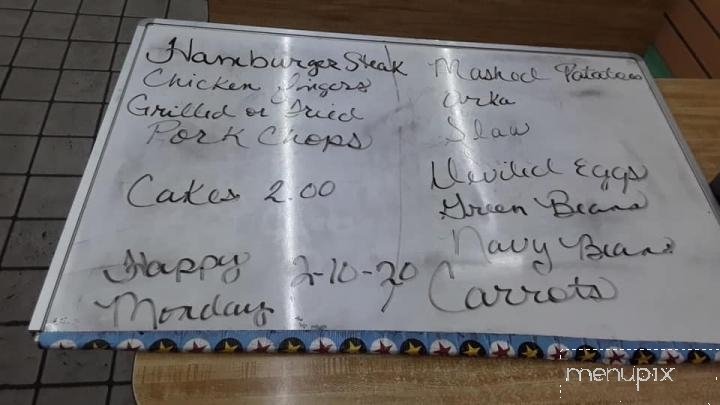 Hamburger Steak
Chicken Fingers
Grilled or Fried
Pork Chops
Cakes 2.00
Happy 2-10-20
Monday
Mashed Potatoes
Orka
Slaw
Deviled Eggs
Green Beans
Navy Beans
Carrots
menupix